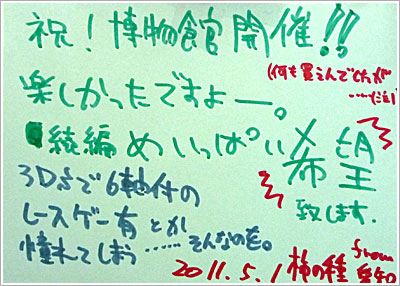 祝!博物館開催!!
(何も買えんでしたが
……泣)
楽しかったですよー。
続編めいっぱい希望
致します.
3DSで6軸付の
レースゲー有とか
憧れてしまう……そんなのを。
2011.5.1 柿の種 from
愛知